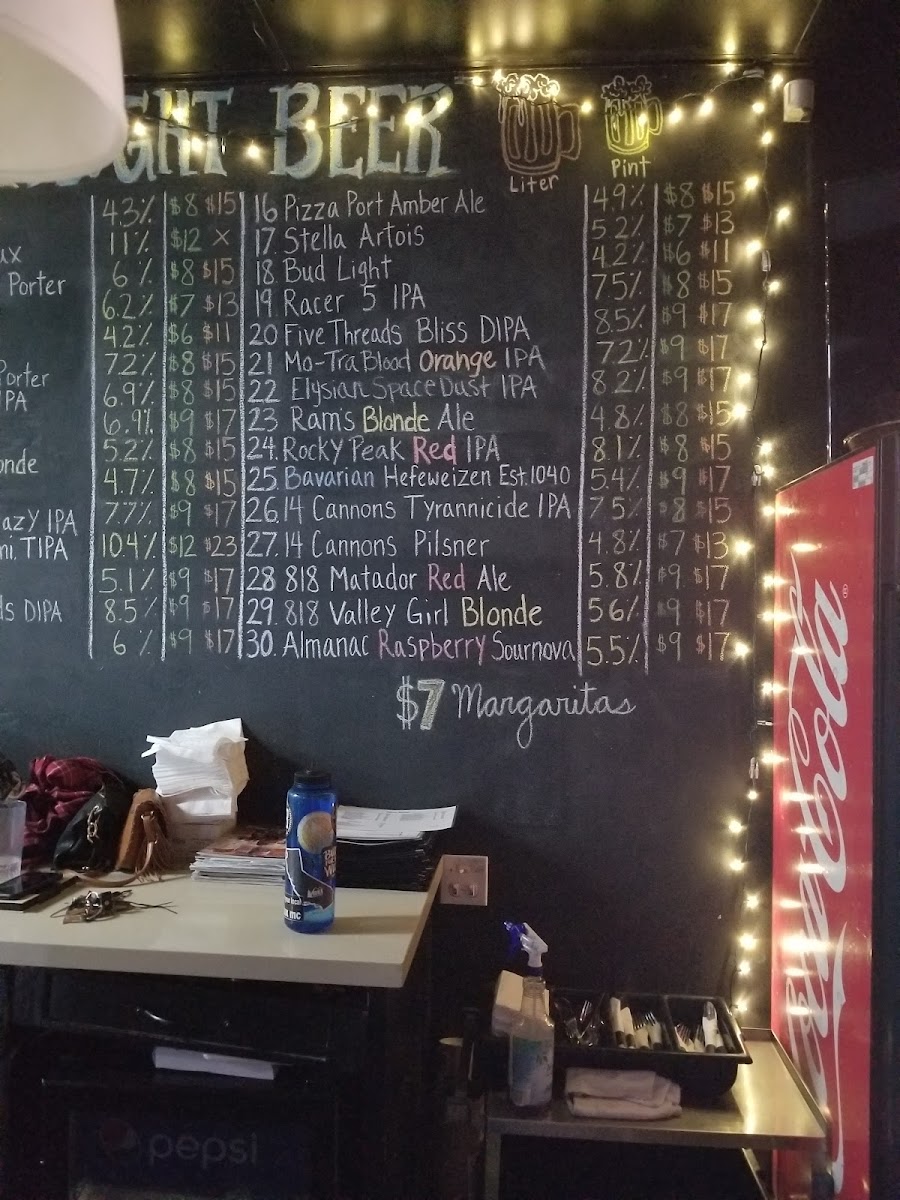 GHT BEER
Liter
Pint
4.3% $8 $15
11% $12 X
ux 6% $8 $15
Porter 6.2% $7 $13
4.2% $6 $11
7.2% $8 $15
Porter 6.9% $8 $15
IPA 6.9% $9 $17
5.2% $8 $15
onde 4.7% $8 $15
7.7% $9 $17
azy IPA 10.4% $12 $23
ni. TIPA 5.1% $9 $17
8.5% $9 $17
ds DIPA 6% $9 $17
16 Pizza Port Amber Ale 4.9% $8 $15
17. Stella Artois 5.2% $7 $13
18. Bud Light 4.2% $6 $11
19. Racer 5 IPA 7.5% $8 $15
20 Five Threads Bliss DIPA 8.5% $9 $17
21 Mo-Tra Blood Orange IPA 7.2% $9 $17
22 Elysian Space Dust IPA 8.2% $9 $17
23 Ram's Blonde Ale 4.8% $8 $15
24. Rocky Peak Red IPA 8.1% $8 $15
25. Bavarian Hefeweizen Est. 1040 5.4% $9 $17
26. 14 Cannons Tyrannicide IPA 7.5% $8 $15
27. 14 Cannons Pilsner 4.8% $7 $13
28 818 Matador Red Ale 5.8% $9 $17
29. 818 Valley Girl Blonde 5.6% $9 $17
30. Almanac Raspberry Sournova 5.5% $9 $17
$7 Margaritas
Coca-Cola
pepsi